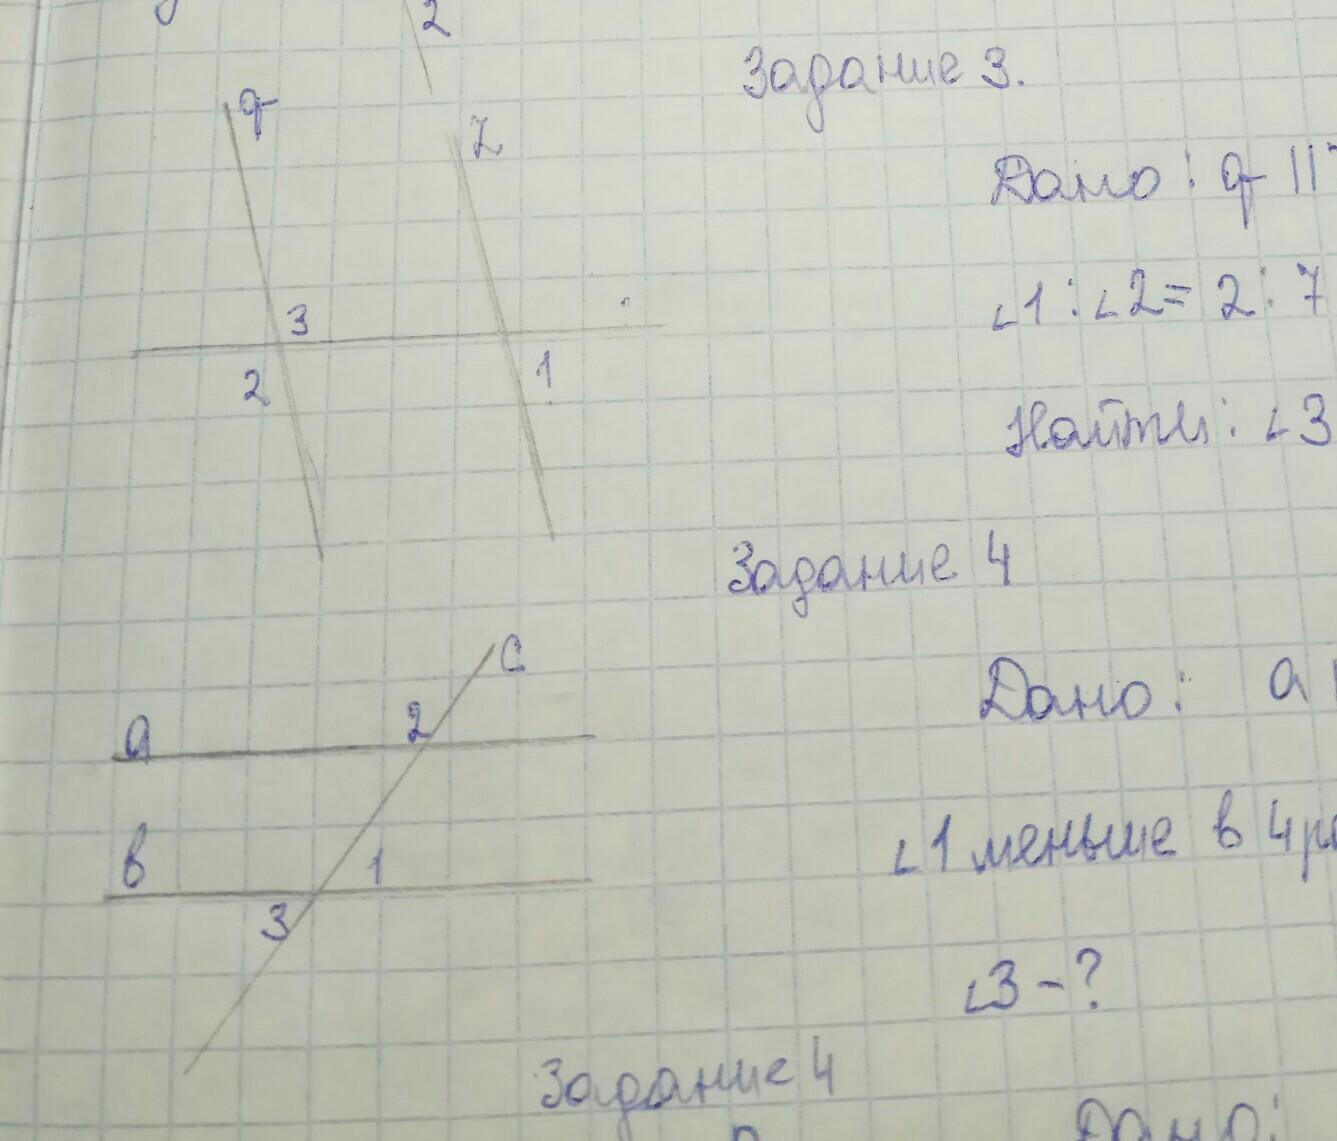 2
Задание 3.
q
z
Дано: q ||
∠1 : ∠2 = 2 : 7
3
2
1
Найти: ∠3
Задание 4
c
a
2
Дано: a
в
1
∠1 меньше в 4 ра
3
∠3 - ?
Задание 4
Дано: